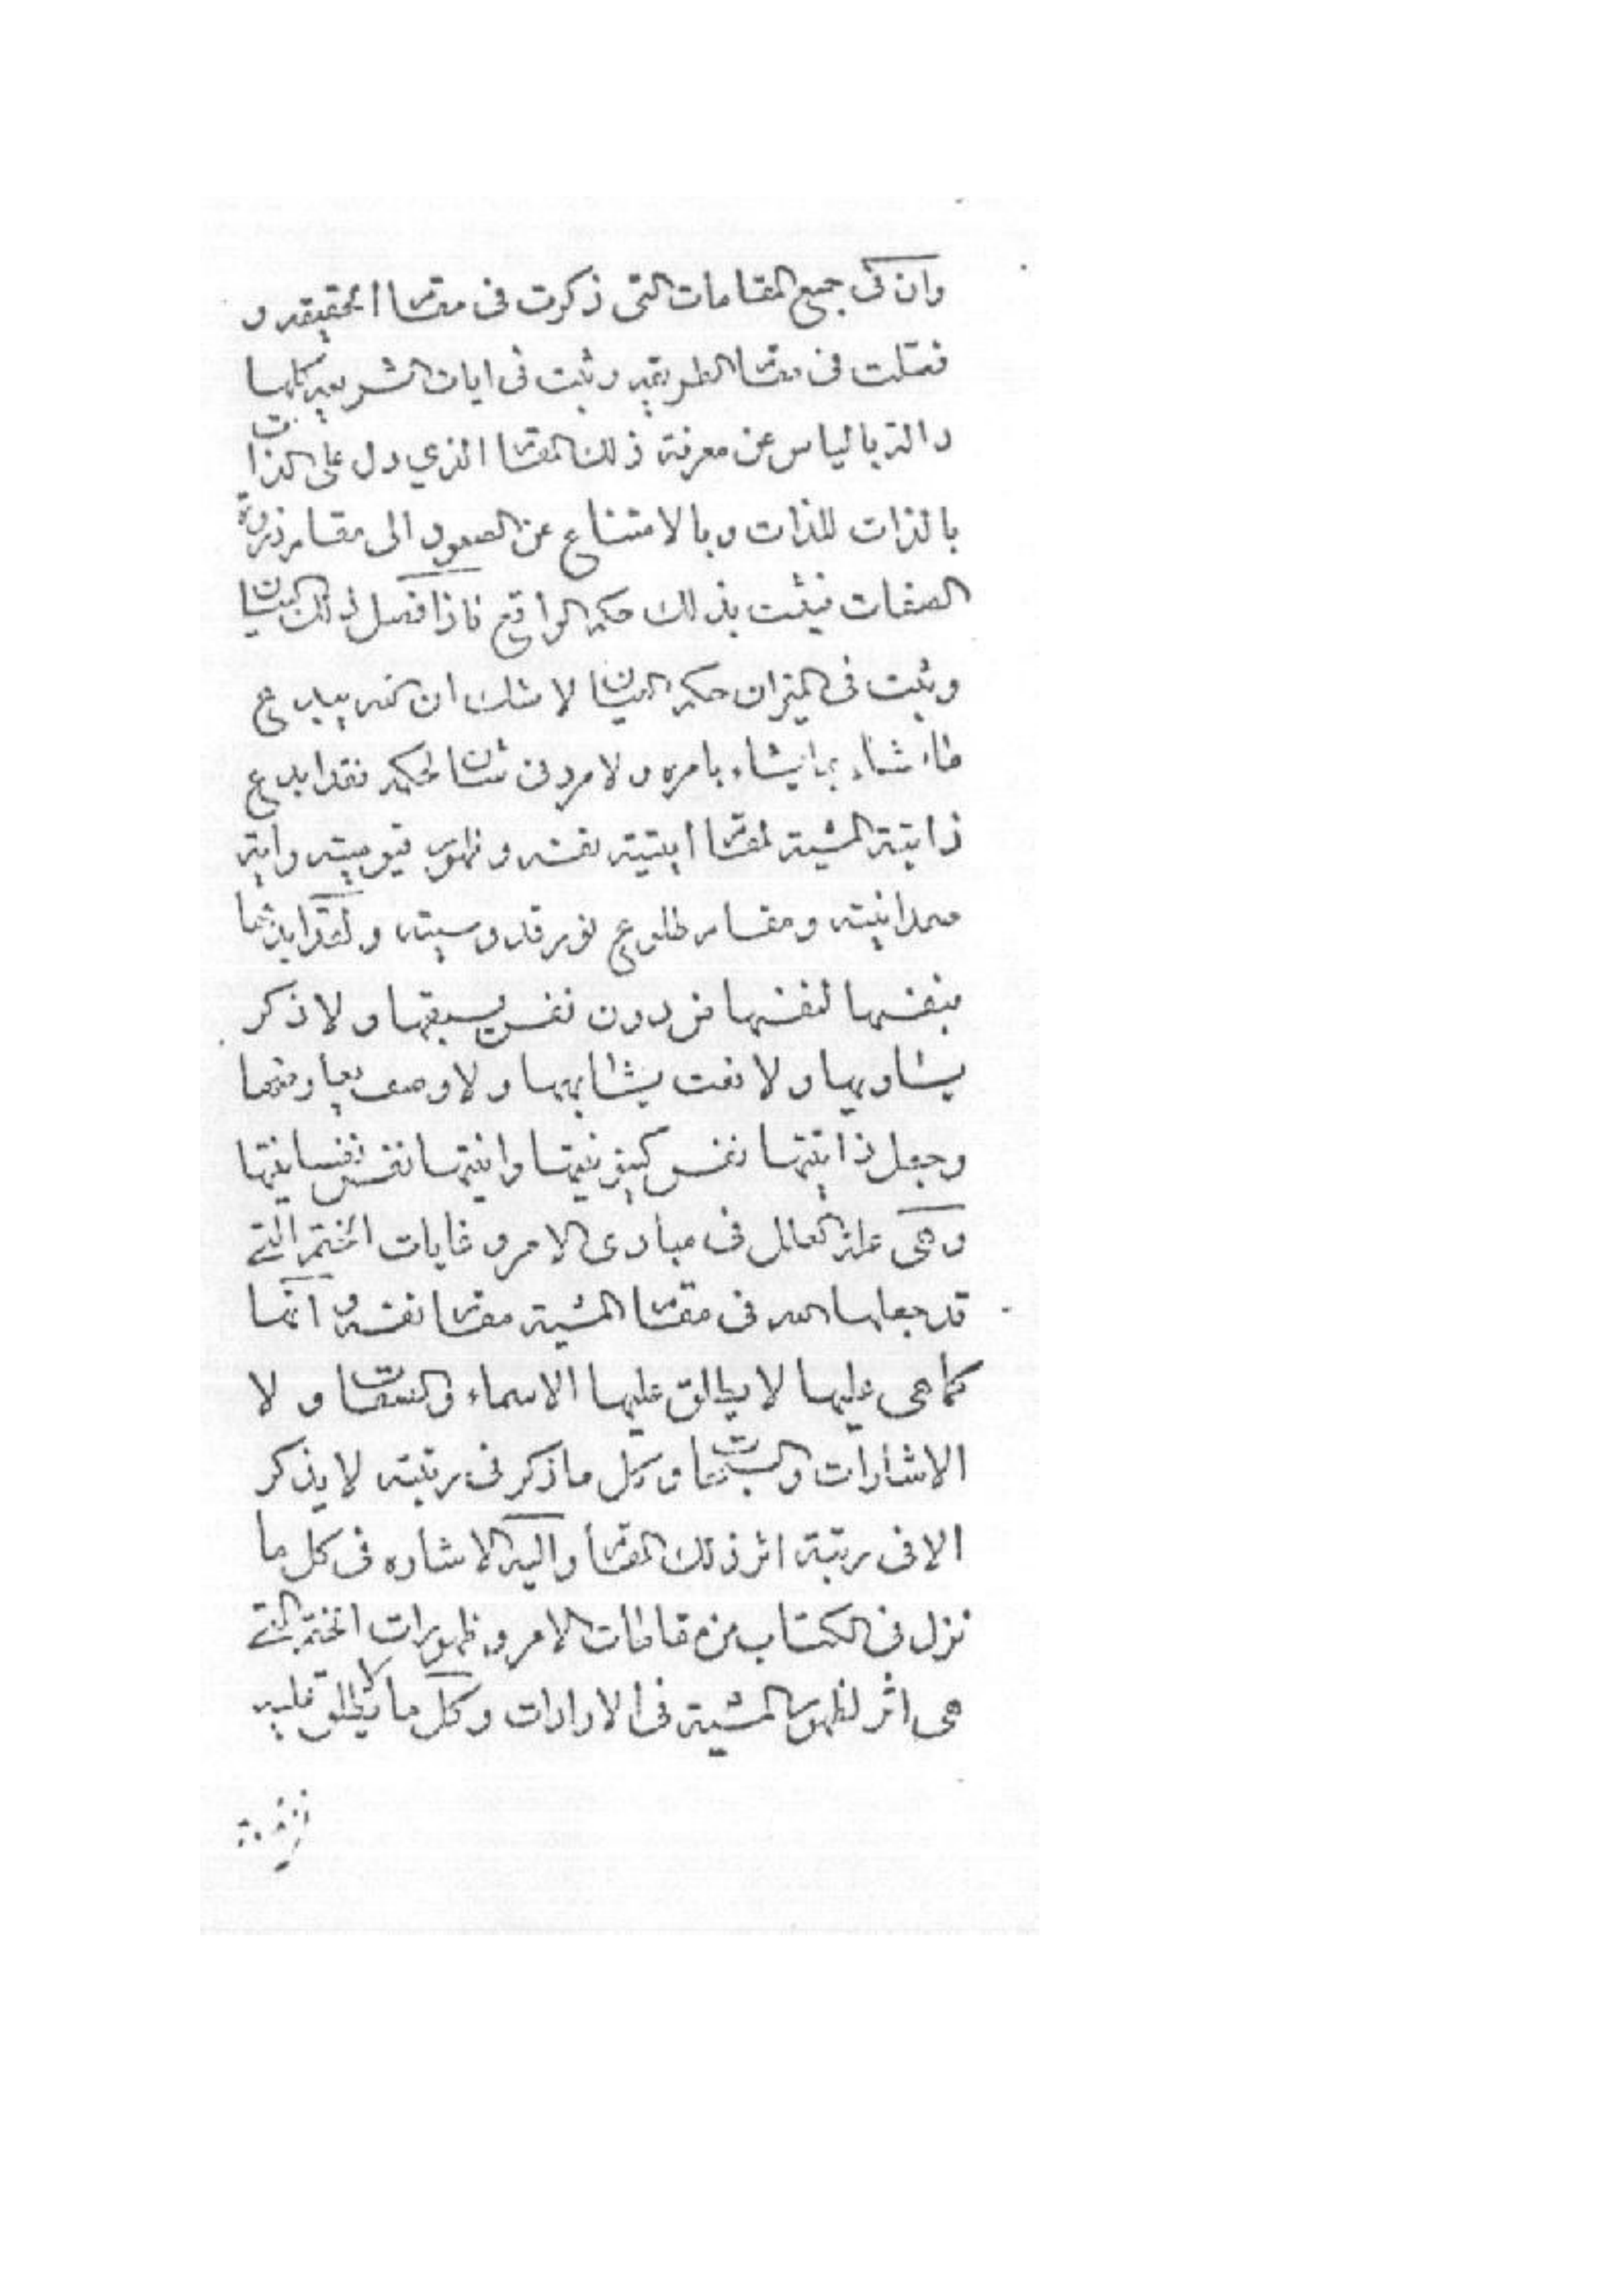 وان فی جمیع المقامات التی ذکرت فی مقام الحقیقه و
فصلت فی مقام الطریقه و ثبت فی ایات الشریعه کلها
دالة بالیاس عن معرفة ذلک المقام الذی دل علی الذات
بالذات للذات و بالامتناع عن الصعود الی مقام ذروة
الصفات فیثبت بذلک حکم الواقع فاذا فصل ذلک البیان
و ثبت فی المیزان حکم البیان لا شک ان الله یبدع
ما شاء بما یشاء بامره و لا مرد فی شان لحکمه فقد ابدع
ذاتیة المشیة لمقام نفسه و ظهور قیومیته و ایة
صمدانیته و مقام طلوع نور قدوسیته و لقد ابدعها
بنفسها لنفسها من دون نفس یسبقها و لا ذکر
یساویها و لا نعت یشابهها و لا وصف یعارضها
و جعل ذاتیتها نفس کینونیتها و انیتها نفس نفسانیتها
و هی علة العلل فی مبادی الامر و غایات الختم التی
قد جعلها الله فی مقام المشیة مقام نفسه و انها
کما هی علیها لا یطلق علیها الاسماء و الصفات و لا
الاشارات و السبحات و کل ما ذکر فی رتبته لا یذکر
الا فی رتبة اثر ذلک المقام و الیه الاشاره فی کل ما
نزل فی الکتاب من مقامات الامر و ظهورات الختم التی
هی اثر لظهور المشیة فی الارادات و کل ما یطلق علیه